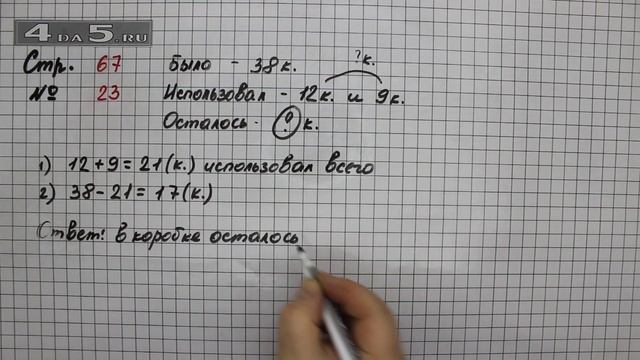 4DA5.RU
Стр. 67 Было - 38к. ?к.
№ 23 Использовал - 12к. и 9к.
Осталось - ? к.
1) 12+9=21(к.) использовал всего
2) 38-21=17(к.)
Ответ: в коробке осталось